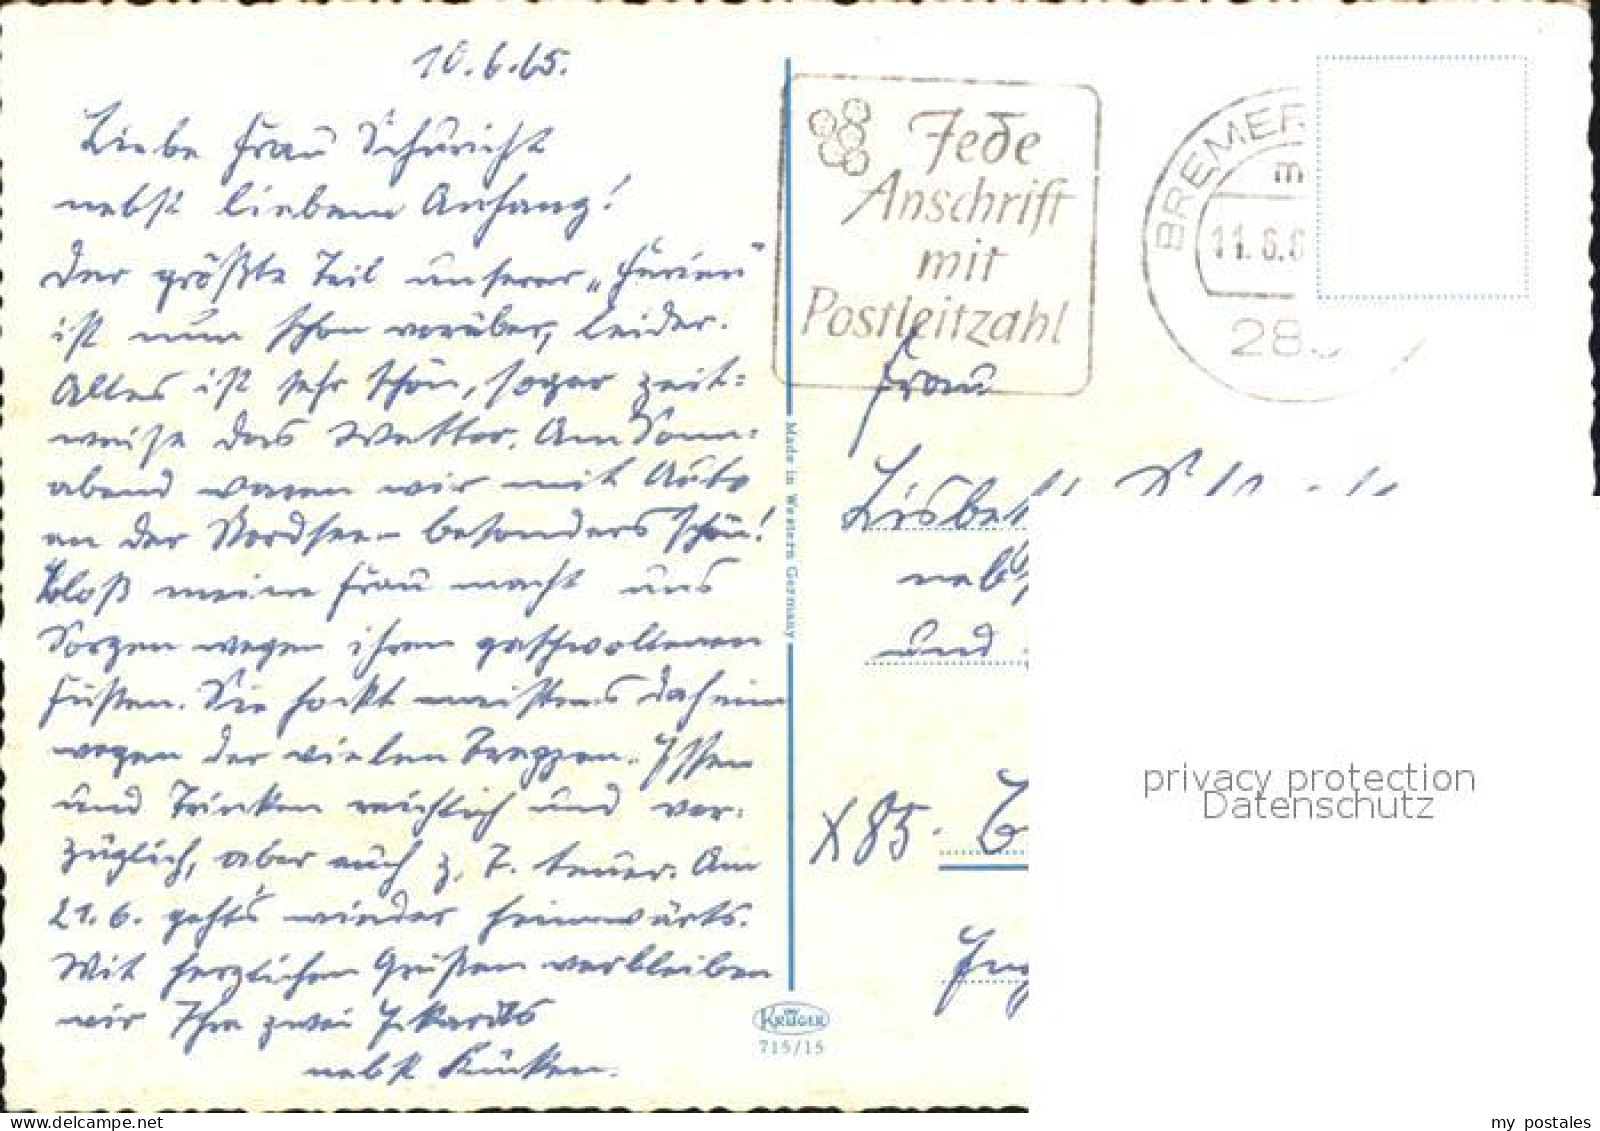 10.6.65.
Liebe Frau Schüricht
nebst liebem Anhang!
Der größte Teil unserer „Ferien"
ist nun schon vorüber, leider.
Alles ist sehr schön, sogar zeit=
weise das Wetter. Am Sonn=
abend waren wir mit Auto
an der Nordsee – besonders schön!
Bloß meine Frau macht uns
Sorgen wegen ihren geschwollenen
Füßen. Sie hockt meistens daheim
wegen der vielen Treppen. Essen
und Trinken reichlich und vor=
züglich, aber auch z. T. teuer. Am
21.6. geht's wieder heimwärts.
Mit herzlichen Grüßen verbleiben
wir Ihre zwei
nebst Küken.
Jede
Anschrift
mit
Postleitzahl
BREMER
m
11.6.6
28
Frau
Lisbet
neb
und
X 85. G
Made in Western Germany
KRÜGER
715/15
privacy protection
Datenschutz
my postales
www.delcampe.net